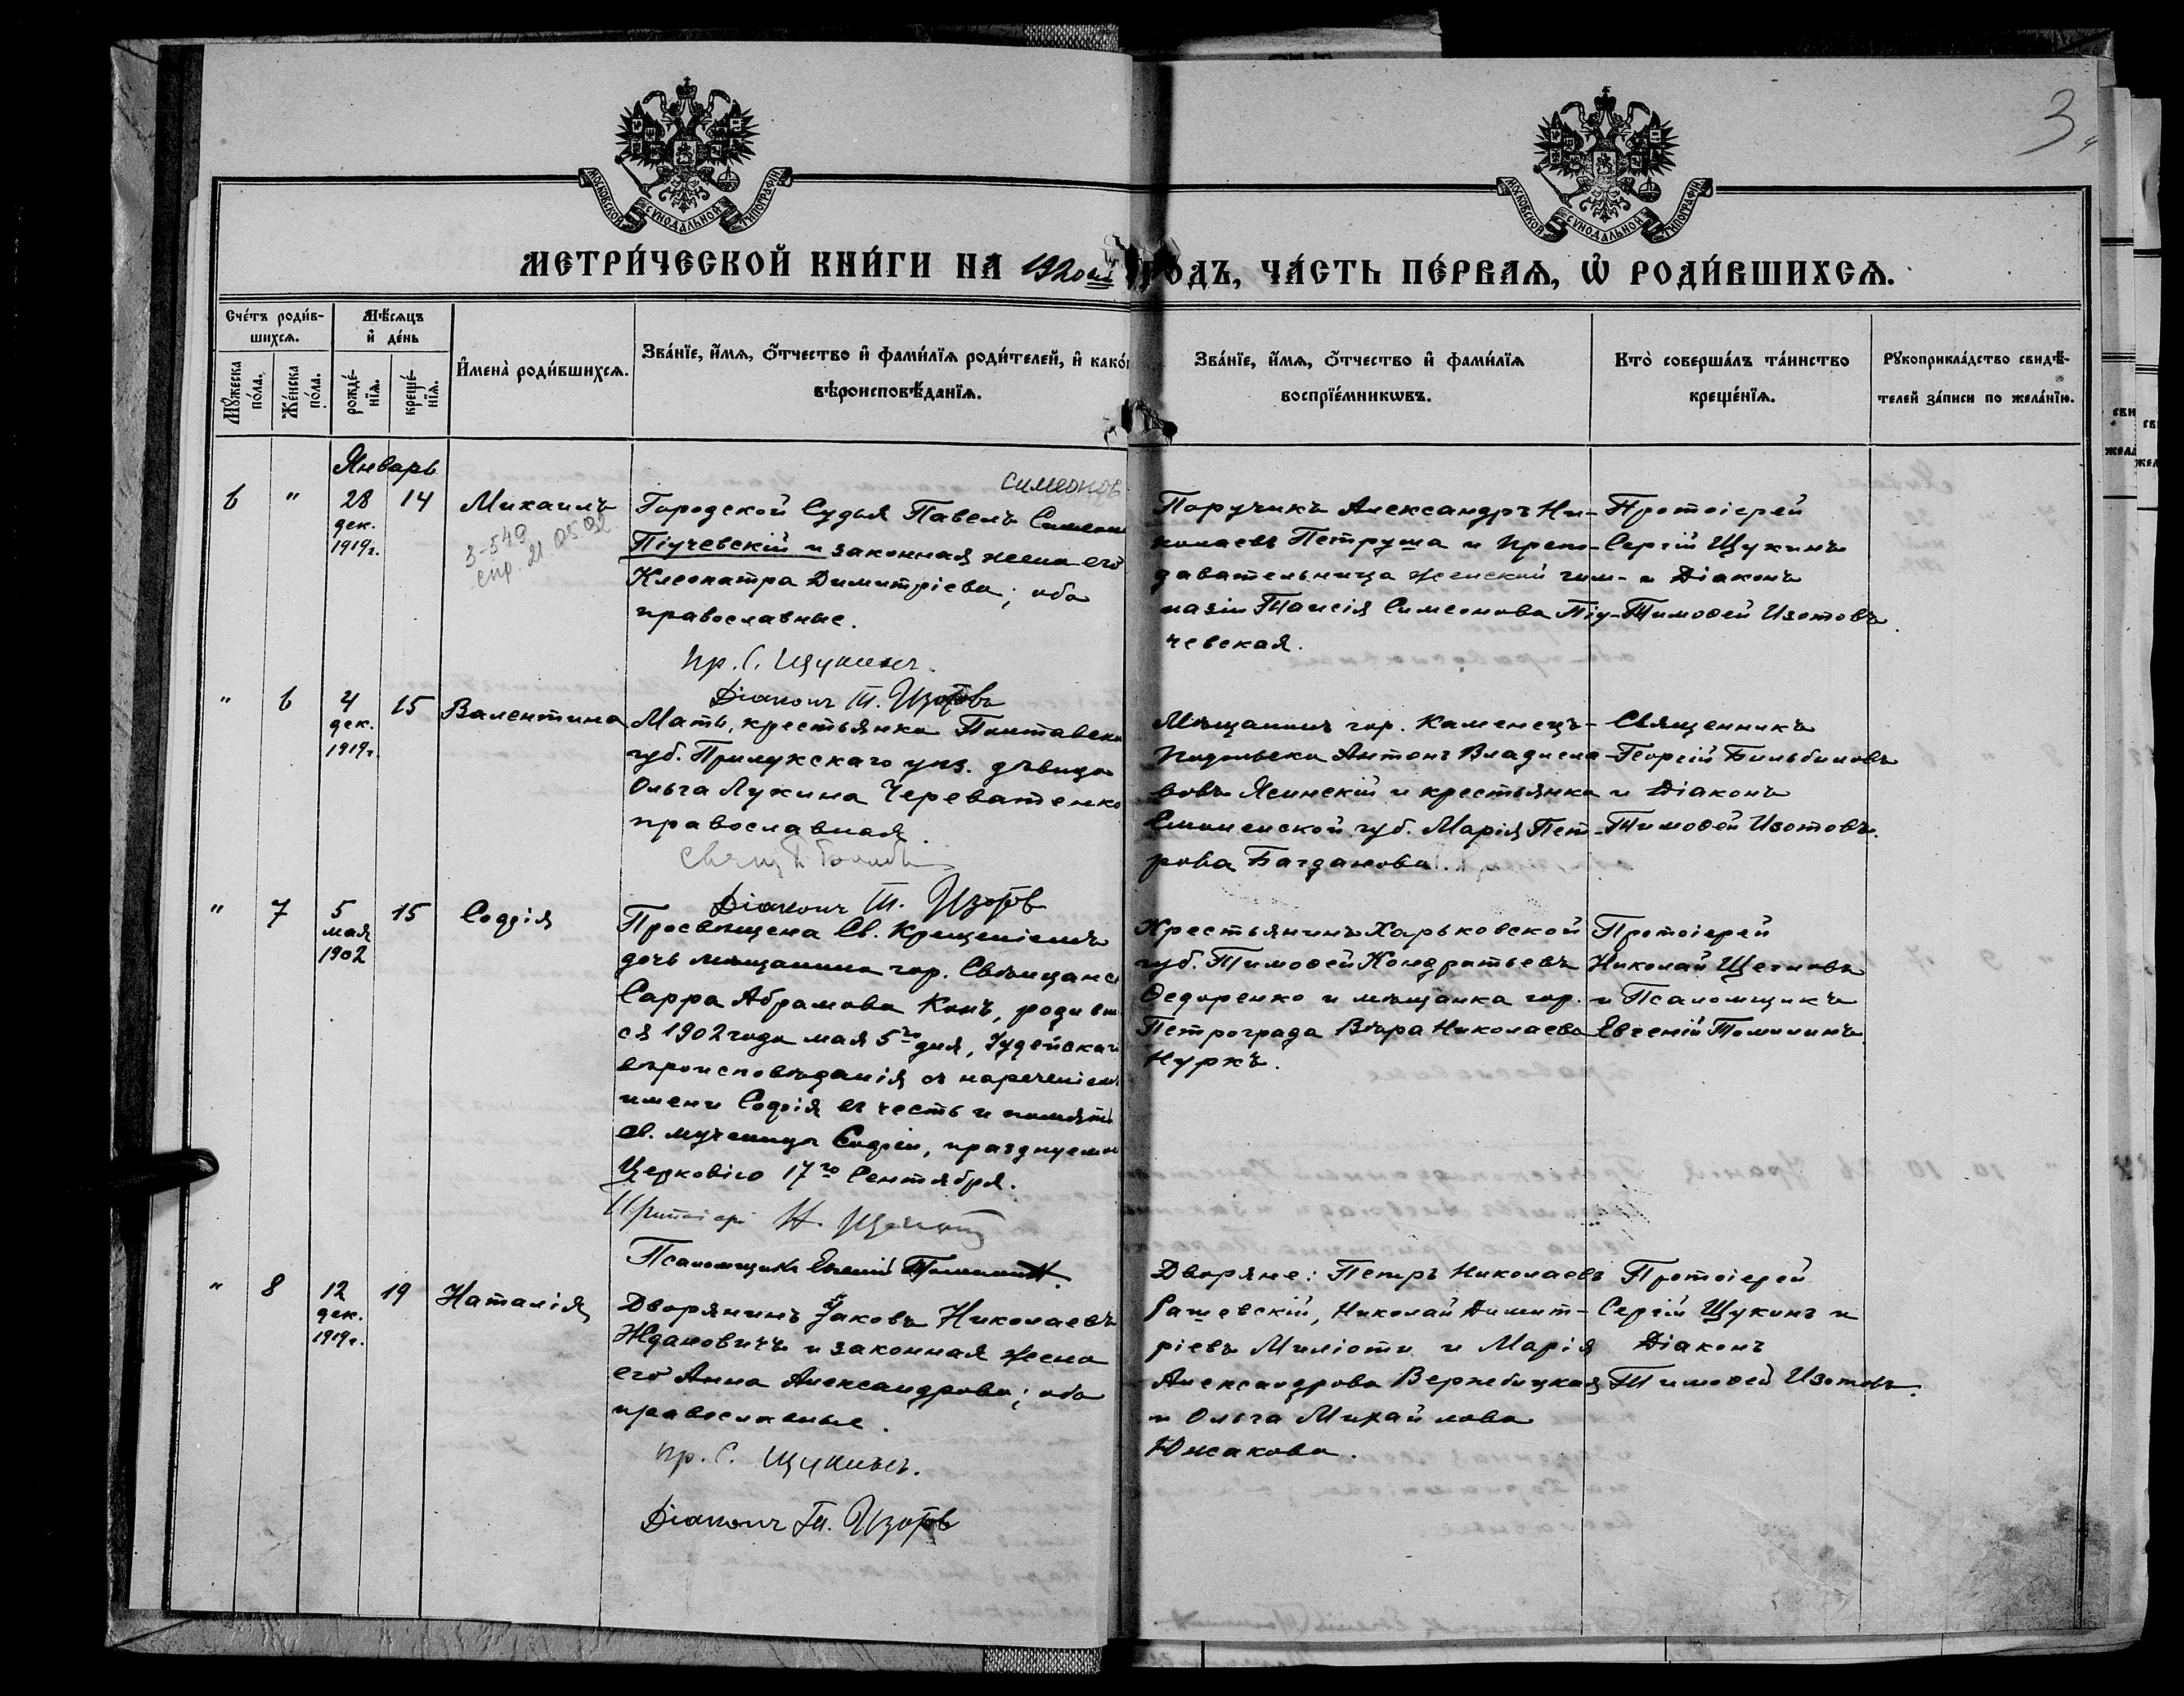 3
МОСКОВСКОЙ СѴНОДАЛЬНОЙ ТИПОГРАФІИ
МОСКОВСКОЙ СѴНОДАЛЬНОЙ ТИПОГРАФІИ
МЕТРИ́ЧЕСКОЙ КНИ́ГИ НА 1920ый ГОДЪ, ЧА́СТЬ ПЕ́РВАѦ, Ѡ РОДИ́ВШИХСѦ.
Сче́тъ роди́в-
шихсѧ.
Мѣ́сѧцъ
и҆ де́нь
Мꙋ́жеска
по́ла.
Же́нска
по́ла.
рожде́-
нїѧ.
креще́-
нїѧ.
И҆мена̀ роди́вшихсѧ.
Зва́нїе, и҆́мѧ, ѻ҆́тчество и҆ фами́лїѧ роди́телей, и҆ како́г
вѣроисповѣ́данїѧ.
Зва́нїе, и҆́мѧ, ѻ҆́тчество и҆ фами́лїѧ
воспрїе́мникѡвъ.
Кто̀ соверша́лъ та́инство
креще́нїѧ.
Рꙋкоприкла́дство свидѣ́-
телей за́писи по жела́нїю.
Январь
6 " 28 14 Михаилъ
дек.
1919г.
3-549
спр. 21
Симеонов
Городской Судья Павелъ Симеон
Піучевскій и законная жена его
Клеопатра Димитріева; оба
православные.
Пр. С. Щукинъ.
Діаконъ Т. Изотовъ
Поручикъ Александръ Ни-
колаевъ Петруша и препо-
давательница женской гим-
назіи Таисія Симеонова Піу-
чевская.
Протоіерей
Сергій Щукинъ
и Діаконъ
Тимоѳей Изотовъ.
" 6 4 15 Валентина
дек.
1919г.
Мать, крестьянка Полтавско
губ. Прилукскаго уѣз. дѣвица
Ольга Лукина Череватенко
православная.
Діаконъ Т. Изотов
Мѣщанинъ гор. Каменецъ-
Подольска Антонъ Владисла-
вовъ Ясинскій и крестьянка
Смоленской губ. Марія Пет-
рова Багданова.
Священникъ
Георгій Бильбиловъ
и Діаконъ
Тимоѳей Изотовъ.
" 7 5 15 Софія
мая
1902
Просвѣщена Св. Крещеніемъ
дочь мѣщанина гор. Свѣнцянс
Сарра Абрамова Конъ, родивш
ся 1902 года мая 5го дня, Іудейскаг
вѣроисповѣданія съ нареченіем
имени Софія въ честь и память
св. мученицы Софіи, празднуемой
Церковію 17го Сентября.
Протоіерей Н. Щеглов
Псаломщикъ Евгеній Томилинъ.
Крестьянинъ Харьковской
губ. Тимоѳей Кондратьевъ
Ѳедоренко и мѣщанка гор.
Петрограда Вѣра Николаева
Нуркъ.
Протоіерей
Николай Щегловъ
и Псаломщикъ
Евгеній Томилинъ
" 8 12 19 Наталія
дек.
1919г.
Дворянинъ Іаковъ Николаевъ
Ждановичъ и законная жена
его Анна Александрова; оба
православные.
Пр. С. Щукинъ.
Діаконъ Т. Изотовъ
Дворяне: Петръ Николаевъ
Рашевскій, Николай Димит-
ріевъ Миліоти и Марія
Александрова Вержбицкая
и Ольга Михайлова
Южакова.
Протоіерей
Сергій Щукинъ и
Діаконъ
Тимоѳей Изотовъ.